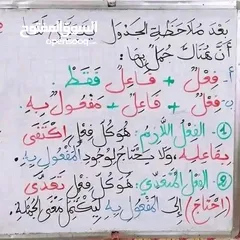 السوق المفتوح
opensooq.com
بعد ملاحظة الجدول
أن هناك جمل بها:
أ- فِعْل + فَاعِل فَقَطْ
ب- فِعْل + فَاعِل + مَفْعُول بِهِ.
1- الفِعْلُ اللَّازِمُ: هُوَ كُلُّ فِعْلٍ اكْتَفَى
بِفَاعِلِهِ وَلَا يَحْتَاجُ لِوُجُودِ المَفْعُولِ بِهِ.
2- الفِعْلُ المُتَعَدِّي: هُوَ كُلُّ فِعْلٍ تَعَدَّى
(احْتَاجَ) إِلَى المَفْعُولِ بِهِ لِيَكْتَمِلَ مَعْنَى الجُمْلَة.